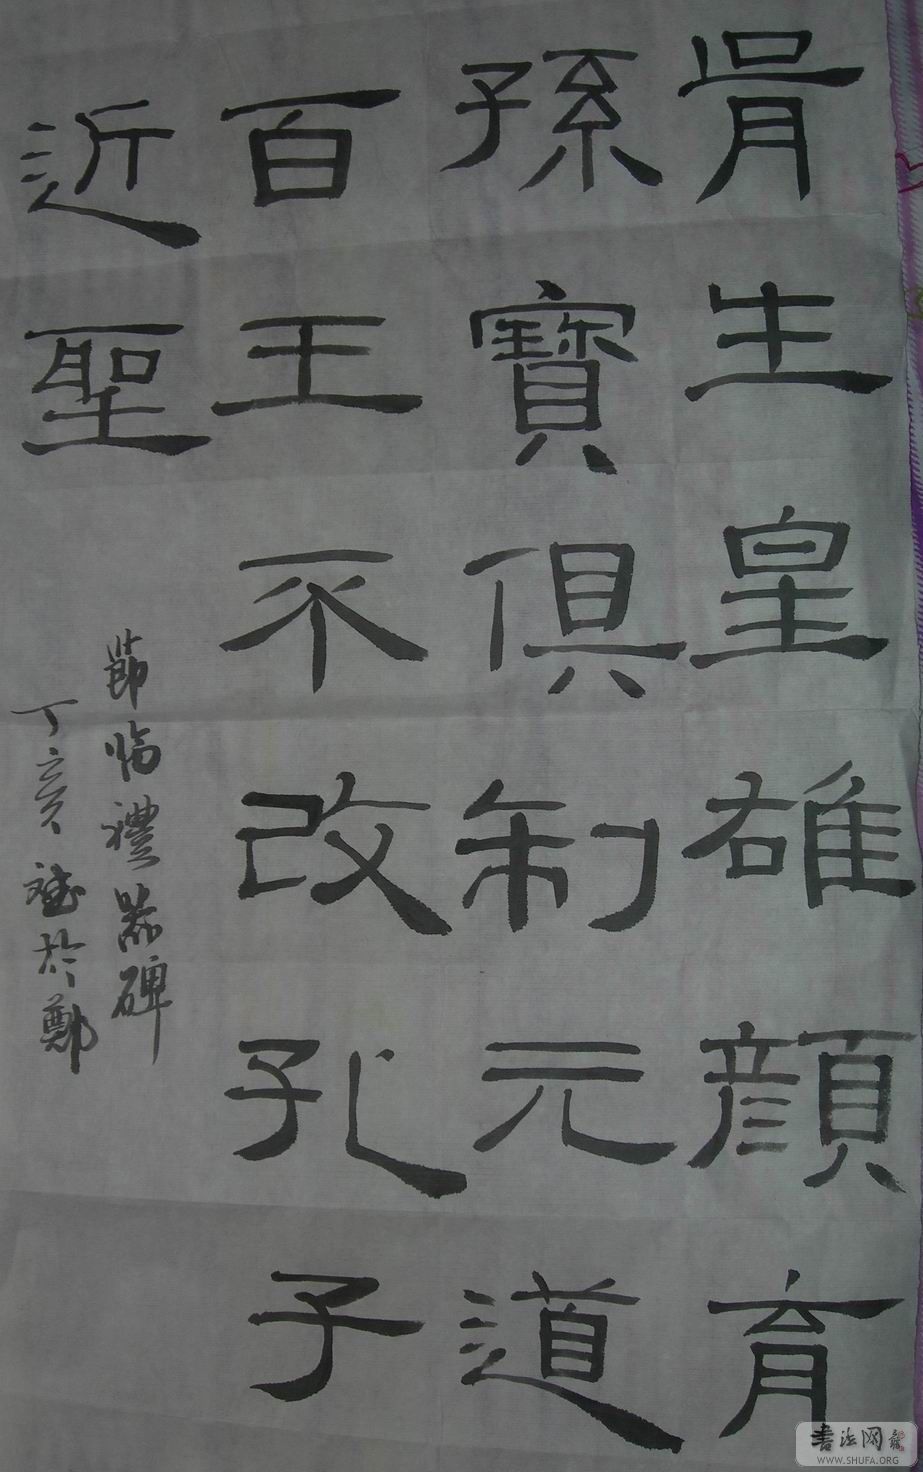 胥生皇雄顏育
孫寶俱制元道
百王不改孔子
近聖
節臨禮器碑
丁亥 於鄭
書法网
WWW.SHUFA.ORG